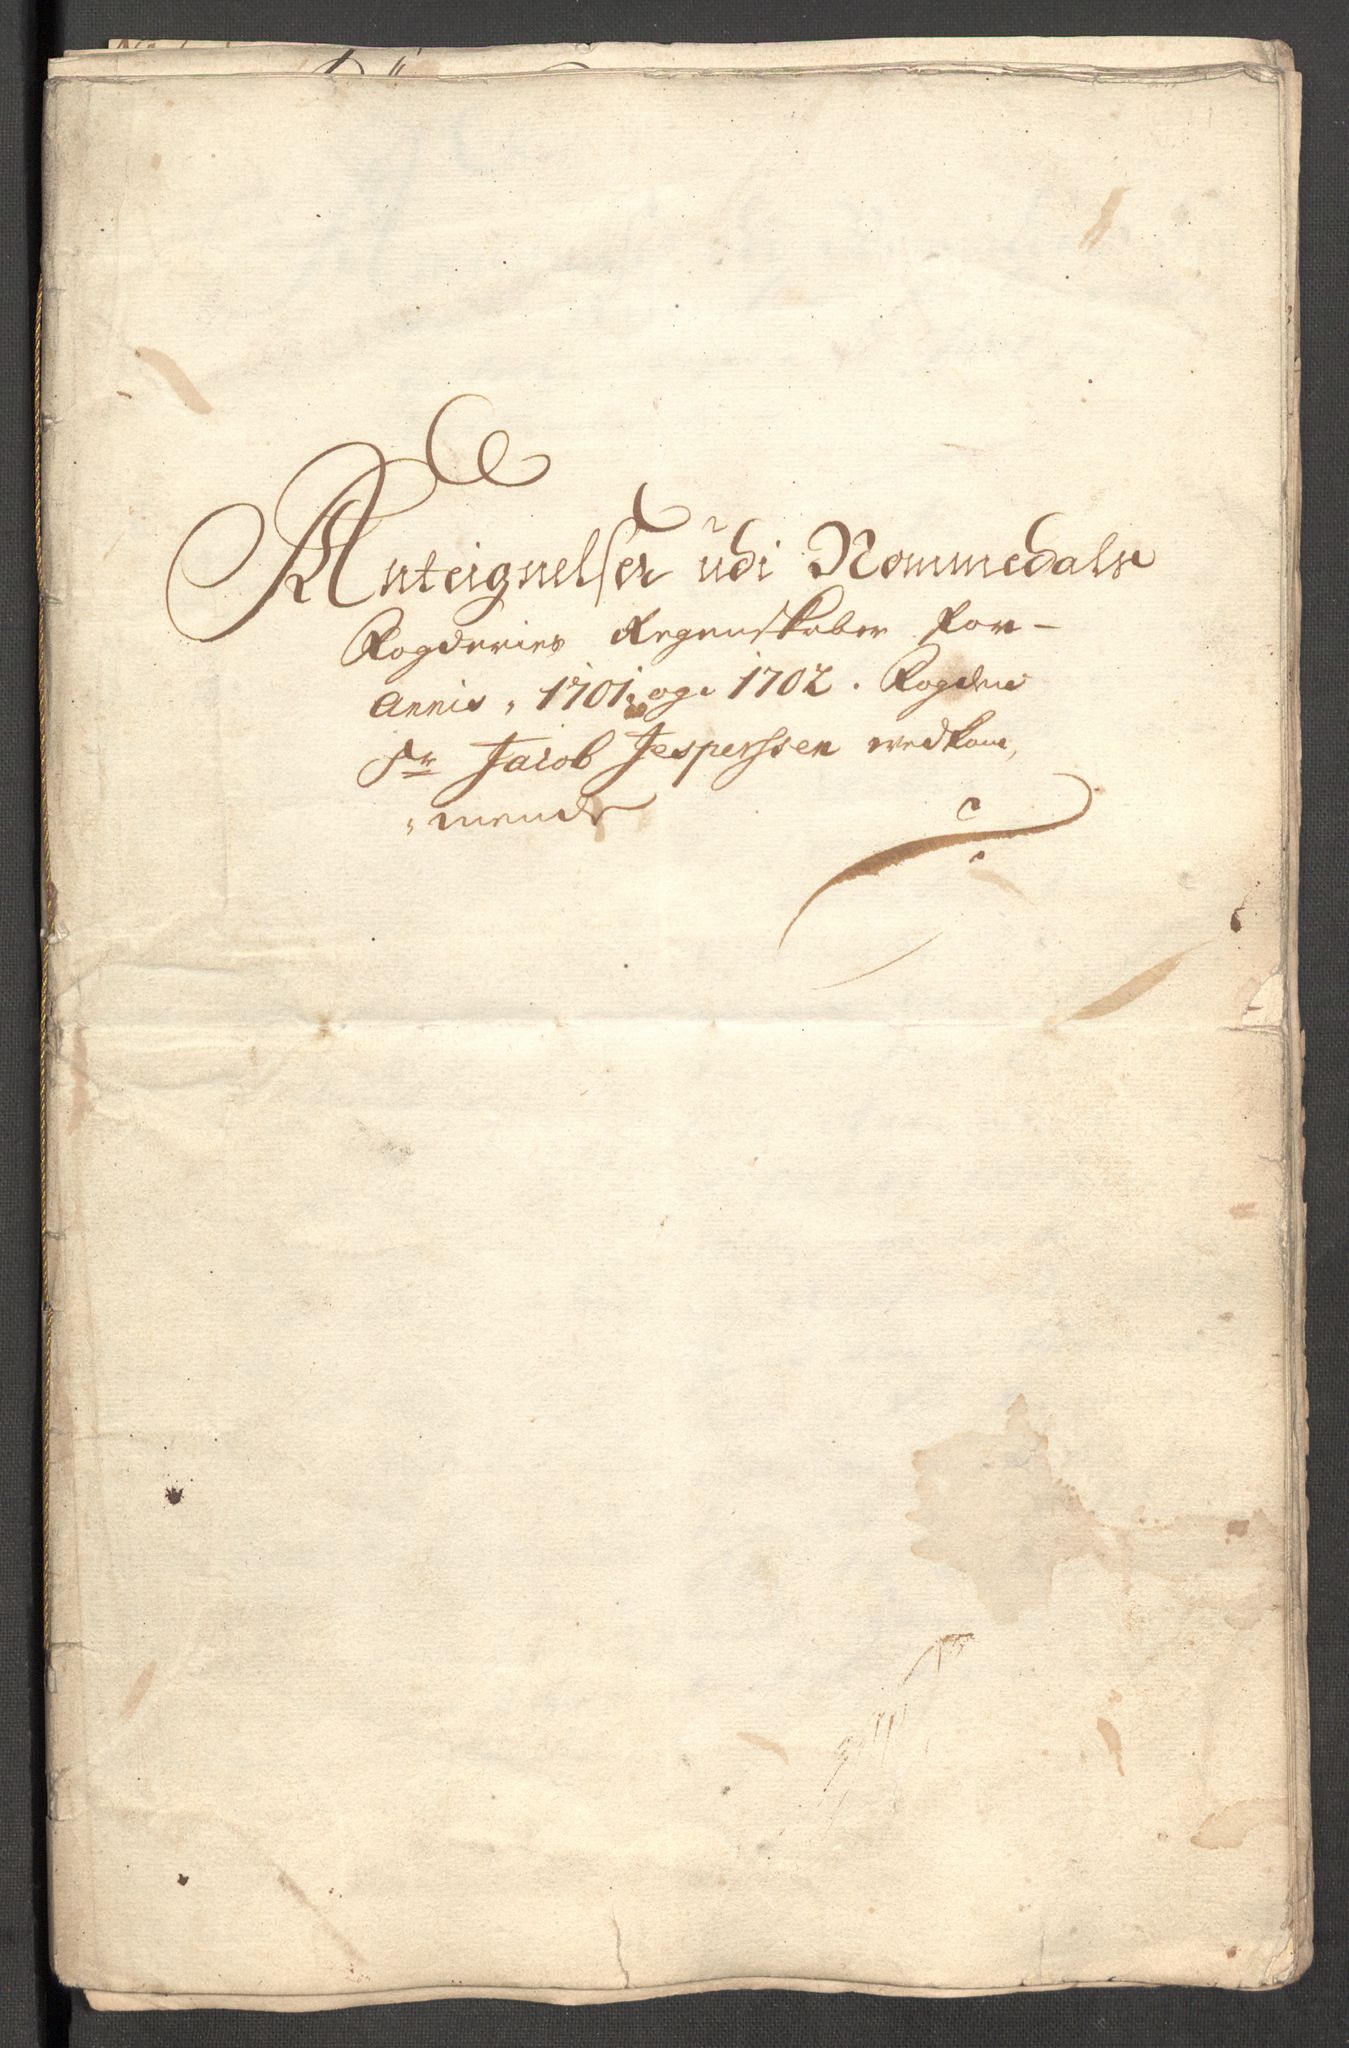 Anteignelser udi Nommedals
Fogderies Regenskaber for-
Annis, 1701, og 1702. Fogden
Sr Jacob Jesperssen vedkom,
,mende